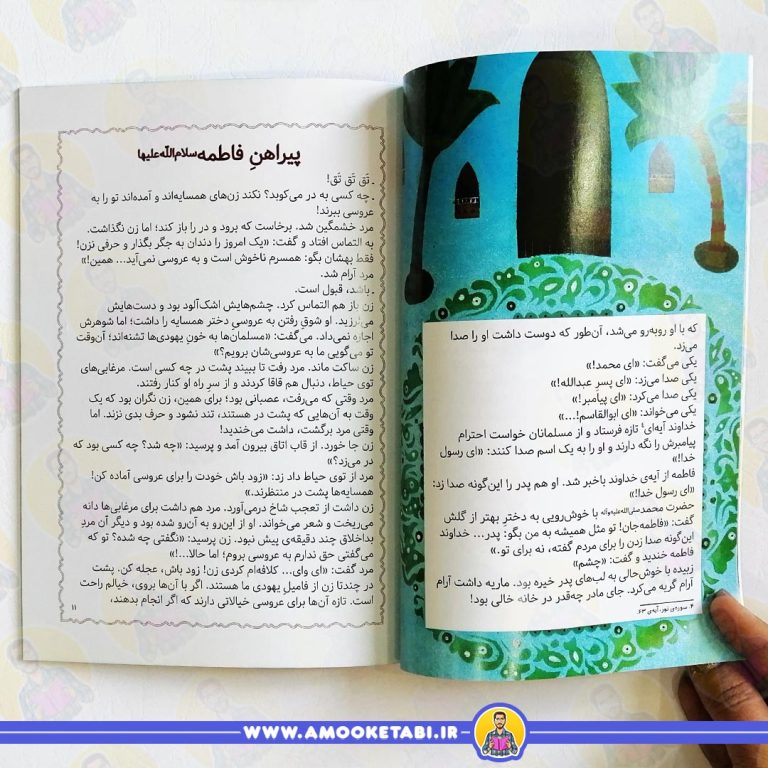 که با او روبه‌رو می‌شد، آن‌طور که دوست داشت او را صدا
می‌زد.
یکی می‌گفت: «ای محمد!»
یکی صدا می‌زد: «ای پسرِ عبدالله!»
یکی صدا می‌کرد: «ای پیامبر!»
یکی می‌خواند: «ای ابوالقاسم!...»
خداوند آیه‌ای۴ تازه فرستاد و از مسلمانان خواست احترام
پیامبرش را نگه دارند و او را به یک اسم صدا کنند: «ای رسول
خدا!»
فاطمه از آیه‌ی خداوند باخبر شد. او هم پدر را این‌گونه صدا زد:
«ای رسول خدا!»
حضرت محمد صلی‌الله‌علیه‌وآله با خوش‌رویی به دخترِ بهتر از گلش
گفت: «فاطمه‌جان! تو مثل همیشه به من بگو: پدر... خداوند
این‌گونه صدا زدن را برای مردم گفته، نه برای تو.»
فاطمه خندید و گفت: «چشم»
زبیده با خوش‌حالی به لب‌های پدر خیره بود. ماریه داشت آرام
آرام گریه می‌کرد. جای مادر چه‌قدر در خانه خالی بود!
۴. سوره‌ی نور، آیه‌ی ۶۳
پیراهنِ فاطمه سلام‌الله‌علیها
ـ تَق تَق تَق!
ـ چه کسی به در می‌کوبد؟ نکند زن‌های همسایه‌اند و آمده‌اند تو را به
عروسی ببرند!
مرد خشمگین شد. برخاست که برود و در را باز کند؛ اما زن نگذاشت.
به التماس افتاد و گفت: «یک امروز را دندان به جگر بگذار و حرفی نزن!
فقط بهشان بگو: همسرم ناخوش است و به عروسی نمی‌آید... همین!»
مرد آرام شد.
ـ باشد، قبول است.
زن باز هم التماس کرد. چشم‌هایش اشک‌آلود بود و دست‌هایش
می‌لرزید. او شوقِ رفتن به عروسیِ دختر همسایه را داشت؛ اما شوهرش
اجازه نمی‌داد. می‌گفت: «مسلمان‌ها به خونِ یهودی‌ها تشنه‌اند؛ آن‌وقت
تو می‌گویی ما به عروسی‌شان برویم؟»
زن ساکت ماند. مرد رفت تا ببیند پشت در چه کسی است. مرغابی‌های
توی حیاط، دنبال هم قاقا کردند و از سرِ راه او کنار رفتند.
مرد وقتی که می‌رفت، عصبانی بود؛ برای همین، زن نگران بود که یک
وقت به آن‌هایی که پشت در هستند، تند نشود و حرف بدی نزند. اما
وقتی مرد برگشت، داشت می‌خندید!
زن جا خورد. از قاب اتاق بیرون آمد و پرسید: «چه شد؟ چه کسی بود که
در می‌زد؟»
مرد از توی حیاط داد زد: «زود باش خودت را برای عروسی آماده کن!
همسایه‌ها پشت در منتظرند.»
زن داشت از تعجب شاخ درمی‌آورد. مرد هم داشت برای مرغابی‌ها دانه
می‌ریخت و شعر می‌خواند. او از این‌رو به آن‌رو شده بود و دیگر آن مردِ
بداخلاق چند دقیقه‌ی پیش نبود. زن پرسید: «نگفتی چه شده؟ تو که
می‌گفتی حق ندارم به عروسی بروم؛ اما حالا...!»
مرد گفت: «ای وای... کلافه‌ام کردی زن! زود باش، عجله کن. پشت
در چندتا زن از فامیلِ یهودی ما هستند. اگر با آن‌ها بروی، خیالم راحت
است. تازه آن‌ها برای عروسی خیالاتی دارند که اگر انجام بدهند،
۱۱
WWW.AMOOKETABI.IR